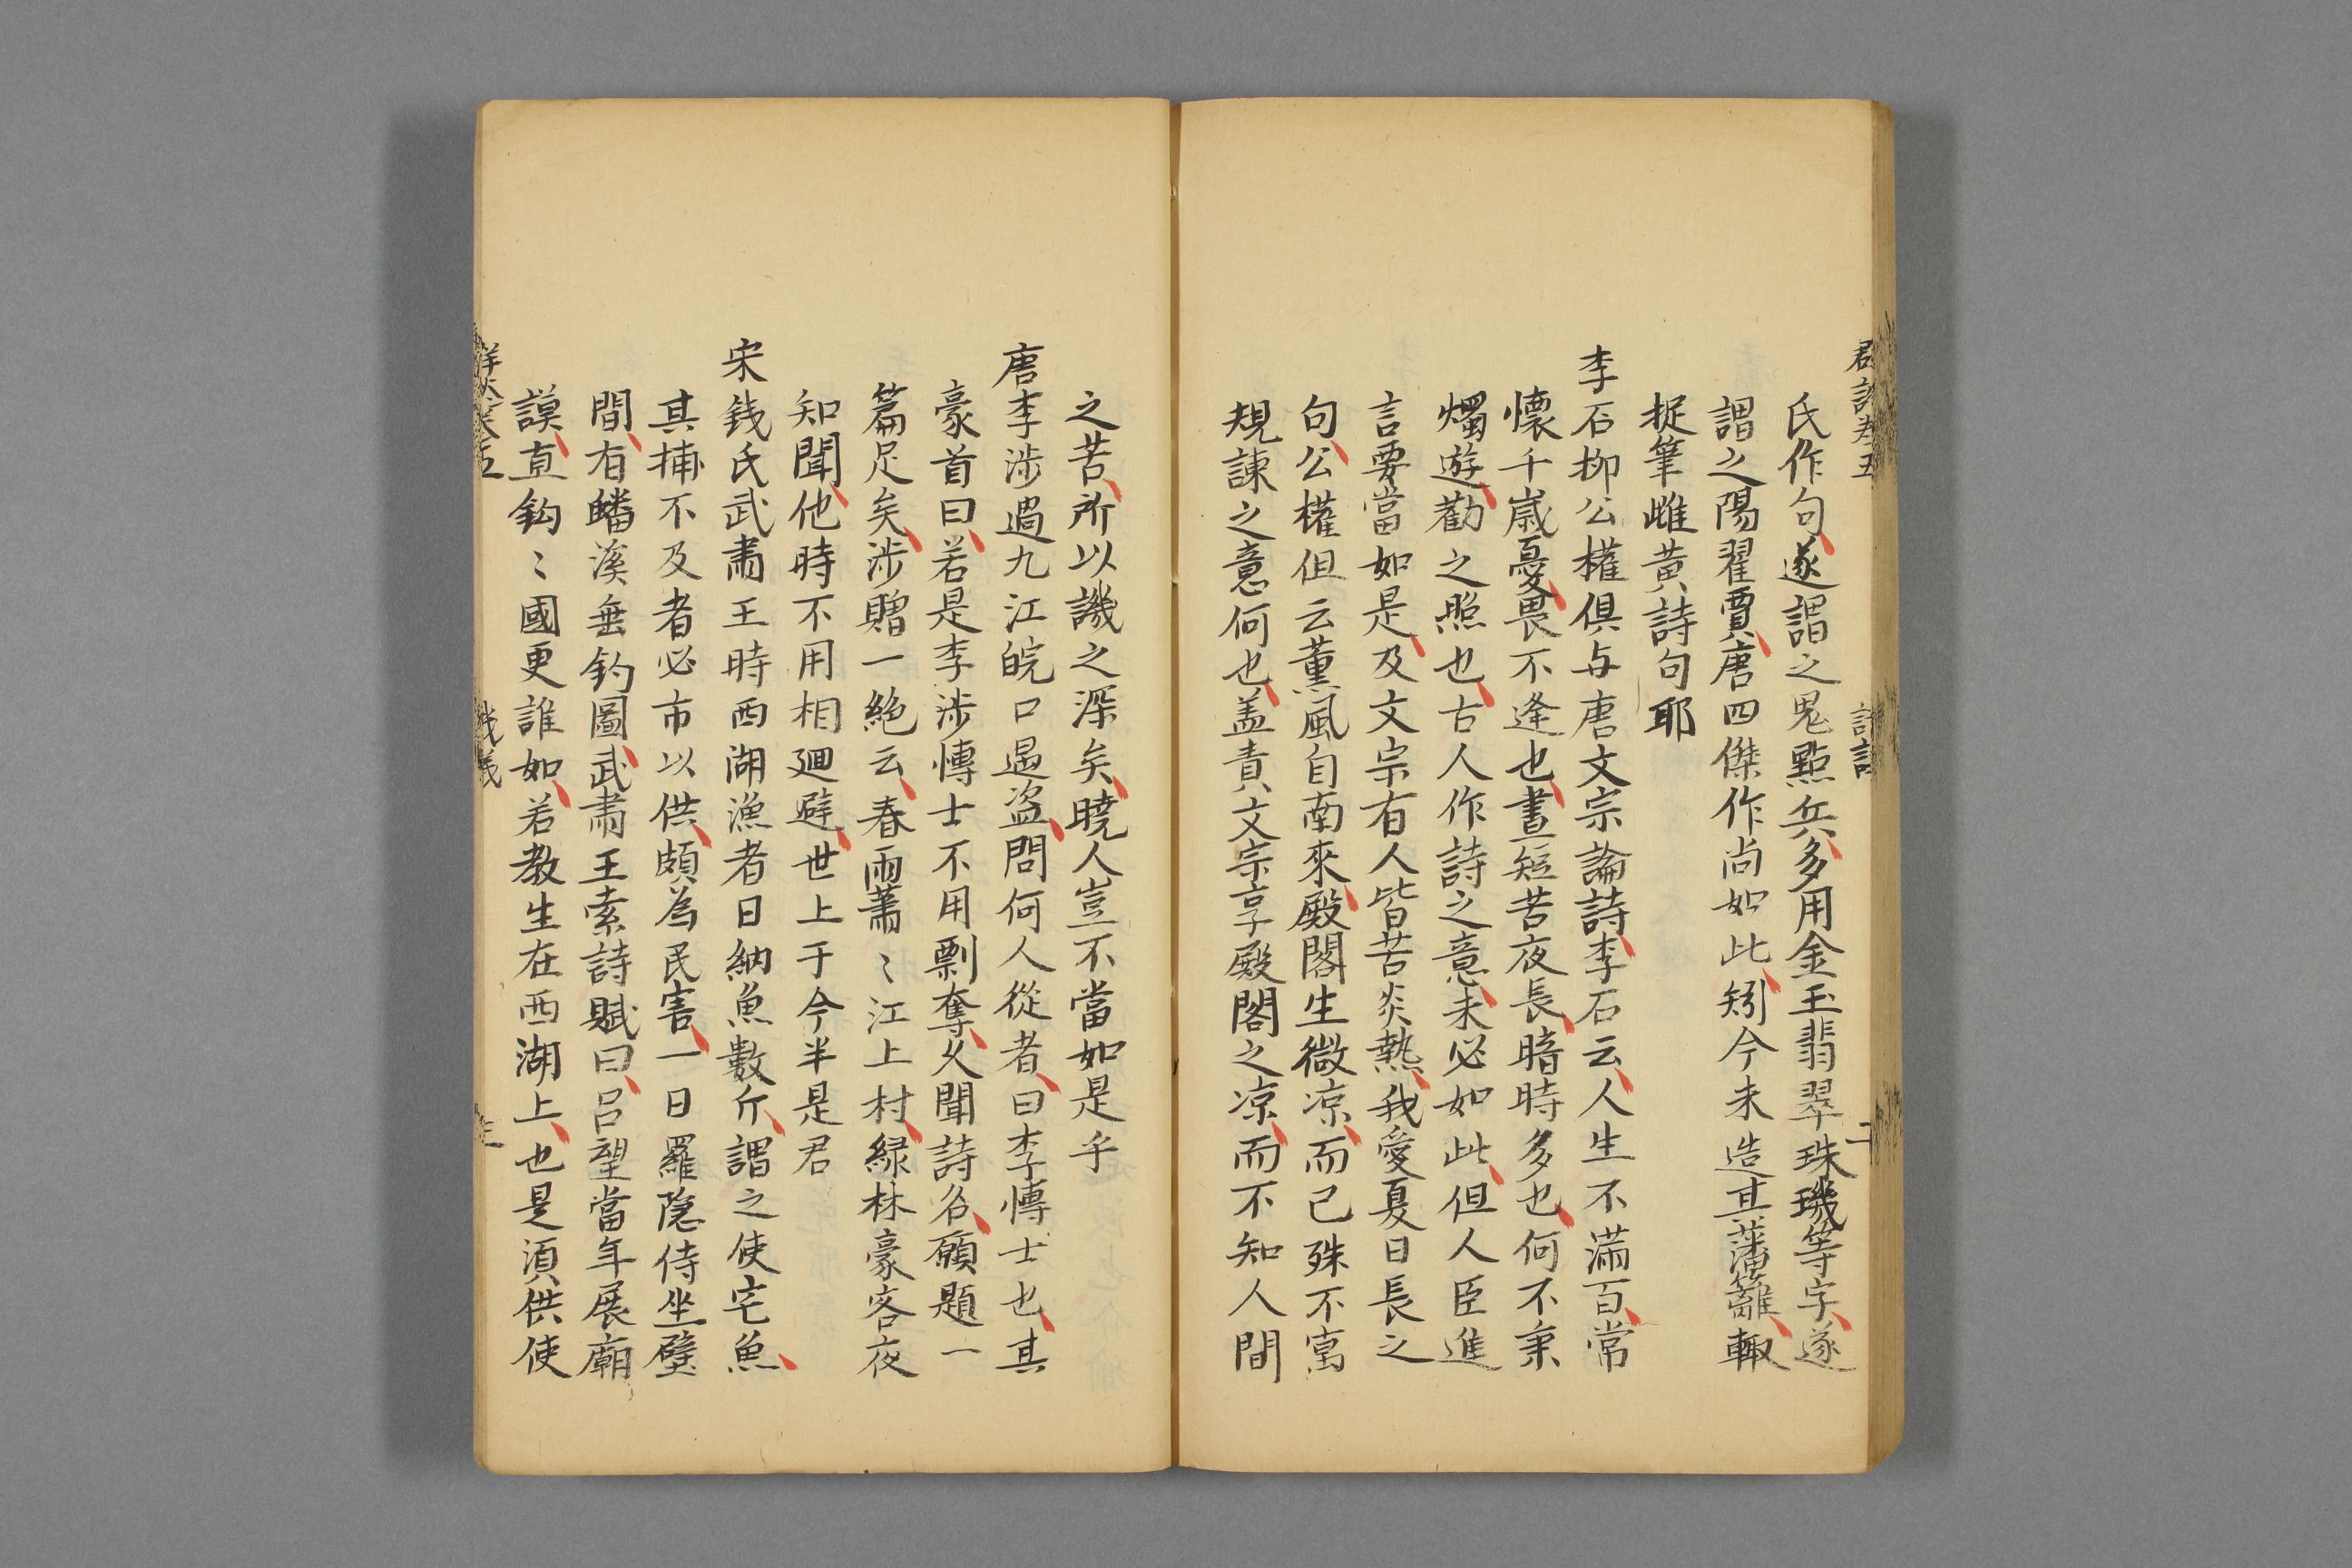 氏作句遂謂之鬼點兵多用金玉翡翠珠璣等字遂
謂之陽翟賈唐四傑作尚如此矧今未造其藩籬輙
捉筆雌黄詩句耶
李石柳公權俱与唐文宗論詩李石云人生不滿百常
懷千嵗憂畏不逢也晝短苦夜長暗時多也何不秉
燭遊勸之照也古人作詩之意未必如此但人臣進
言要當如是及文宗有人皆苦炎熱我愛夏日長之
句公權但云薰風自南來殿閣生微凉而已殊不寓
規諫之意何也盖責文宗享殿閣之凉而不知人間
之苦所以譏之深矣曉人豈不當如是乎
唐李涉過九江皖口遇盗問何人從者曰李愽士也其
豪首曰若是李涉愽士不用剽奪久聞詩名願題一
篇足矣涉贈一絶云春雨蕭〻江上村緑林豪客夜
知聞他時不用相廻避世上于今半是君
宋錢氏武肅王時西湖漁者日納魚數斤謂之使宅魚
其捕不及者必市以供頗為民害一日羅隐侍坐壁
間有磻溪垂釣圖武肅王索詩賦曰吕望當年展廟
謨直鈎〻國更誰如若教生在西湖上也是湏供使